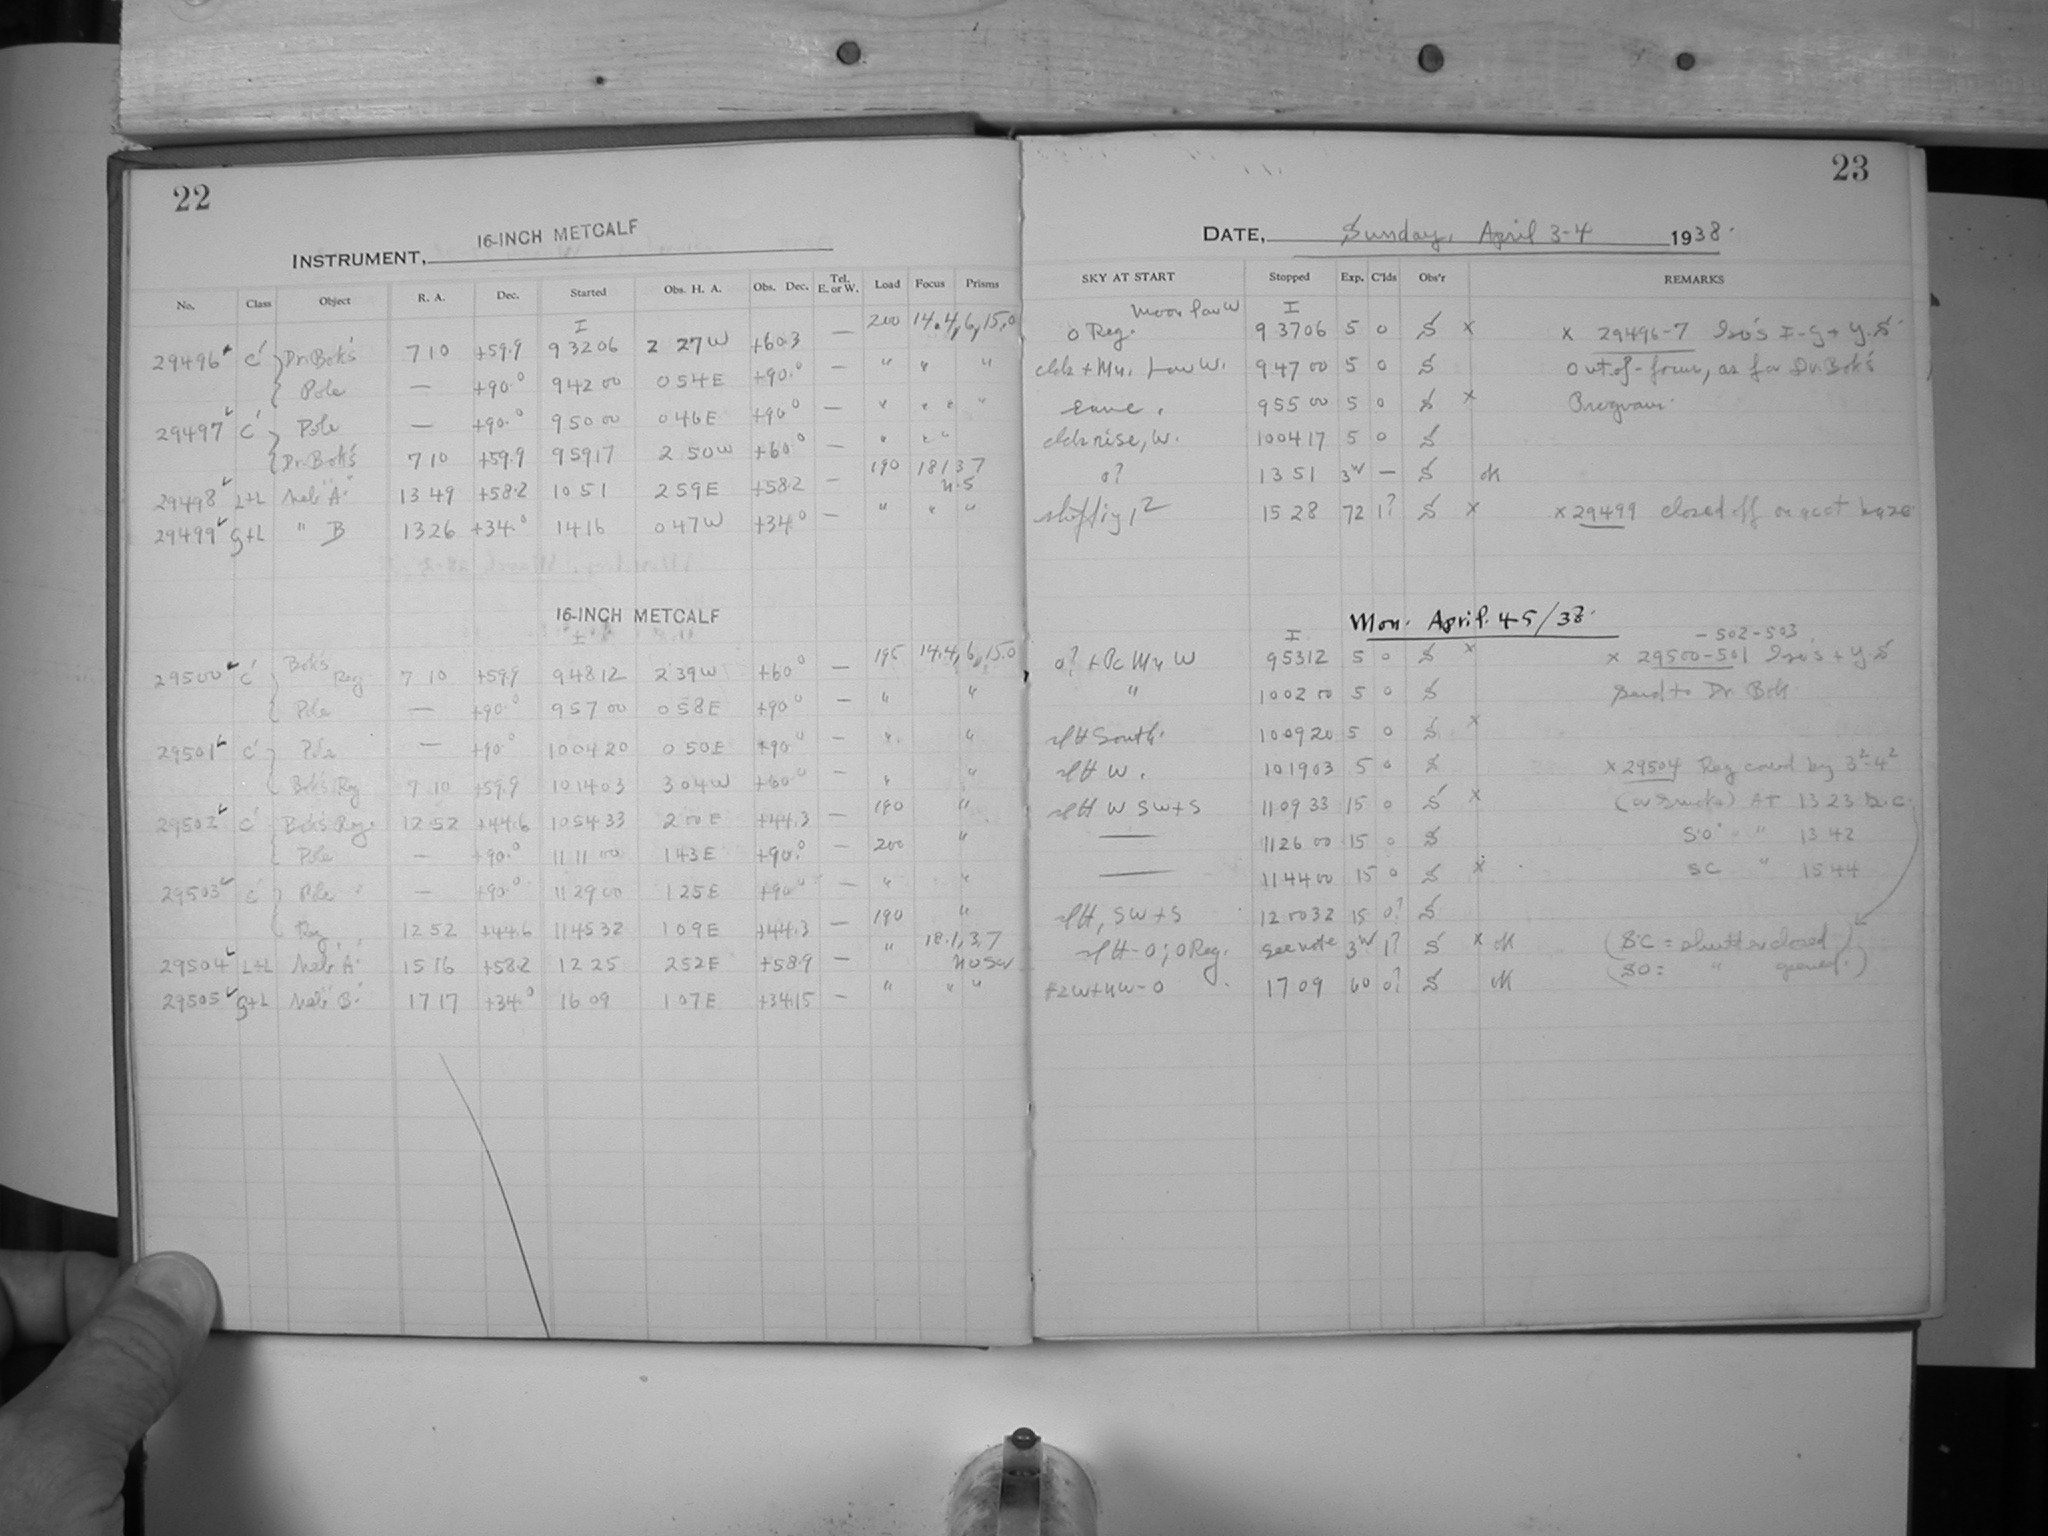 22
INSTRUMENT, 16-INCH METCALF
No. Class Object R. A. Dec. Started Obs. H. A. Obs. Dec. Tel. E. or W. Load Focus Prisms
I
29496 C' Dr. Bok's 7 10 +59.9 9 32 06 2 27 W +60.3 — 200 14.4, 6, 15.0
Pole — +90.° 9 42 00 0 54 E +90.° — " " "
29497 C' Pole — +90.° 9 50 00 0 46 E +90° — " " " "
Dr. Bok's 7 10 +59.9 9 59 17 2 50 W +60.° — " " "
29498 L+L Neb "A" 13 49 +58.2 10 51 2 59 E +58.2 — 190 18 1 3 7
29499 G+L " B 13 26 +34.° 14 16 0 47 W +34.° — " " "
16-INCH METCALF
I
29500 C' Bok's Reg 7 10 +59.9 9 48 12 2 39 W +60° — 195 14.4, 6, 15.0
Pole — +90.° 9 57 00 0 58 E +90° — " "
29501 C' Pole — +90° 10 04 20 0 50 E +90° — " "
Bok's Reg 7 10 +59.9 10 14 03 3 04 W +60° — " "
29502 C' Bok's Reg. 12 52 +44.6 10 54 33 2 00 E +44.3 — 190 "
Pole — +90.° 11 11 00 1 43 E +90.° — 200 "
29503 C' Pole — +90.° 11 29 00 1 25 E +90° — " "
Reg. 12 52 +44.6 11 45 32 1 09 E +44.3 — 190 "
29504 L+L Neb "A" 15 16 +58.2 12 25 2 52 E +58.9 — " 18.1, 3, 7
29505 G+L Neb "B" 17 17 +34.° 16 09 1 07 E +34.15 — " " "
23
DATE, Sunday, April 3-4 1938.
SKY AT START Stopped Exp. C'lds Obs'r REMARKS
Moon low W I
0 Reg. 9 37 06 5 0 S x x 29496-7 Iso's I-G + Y.S
+ Mn. Low W. 9 47 00 5 0 S Out-of-focus, as for Dr. Bok's
same. 9 55 00 5 0 S x Program.
rise, W. 10 04 17 5 0 S
0? 13 51 3W — S ok
shifting, 2 15 28 72 1? S x x 29499 closed off on acct haze
Mon. April. 4-5/38.
I -502-503
0? + Mn W 9 53 12 5 0 S x x 29500-501 Iso's + Y.S
" 10 02 00 5 0 S send to Dr. Bok
South. 10 09 20 5 0 S x
W. 10 19 03 5 0 S x 29504 Reg cov'd by 3²-4²
W SW+S 11 09 33 15 0 S x AT 13 23 S.C.
— 11 26 00 15 0 S S.O. " 13 42
— 11 44 00 15 0 S x SC " 15 44
SW+S 12 00 32 15 0? S
0; 0 Reg. see note 3W 1? S x ok (SC = shutter closed)
17 09 60 0? S ok (SO = " opened.)